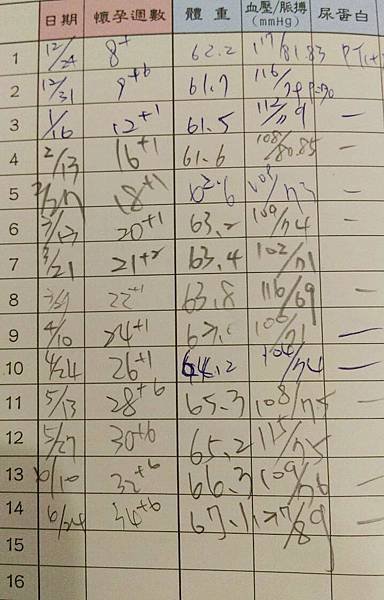 日期 懷孕週數 體重 血壓/脈搏(mmHg) 尿蛋白
1 12/24 8+ 62.2 117/81.83
2 12/31 9+6 61.7 116/74 P=70
3 1/16 12+1 61.5 112/79 —
4 2/13 16+1 61.6 108/80.85 —
5 18+1 62.6 103/73 —
6 3/13 20+1 63.2 109/74 —
7 3/21 21+2 63.4 102/71 —
8 22+1 63.8 116/69 —
9 4/10 24+1 —
10 4/24 26+1 64.2 104/74 —
11 5/13 28+6 65.3 108/75 —
12 5/27 30+6 65.2 115/75
13 6/10 32+6 66.3 109/76 —
14 6/24 34+6 67.1 127/89 —
15
16